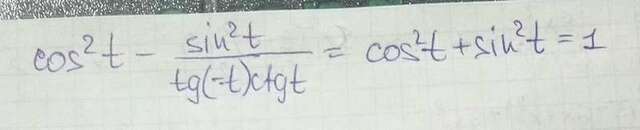 cos²t - sin²t / tg(-t)ctgt = cos²t + sin²t = 1